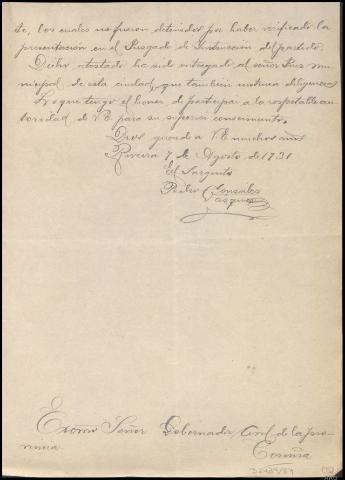 te, los cuales no fueron detenidos por haber verificado la
presentación en el Juzgado de Instrucción del partido.
Dicho atestado ha sido entregado al señor Juez mu-
nicipal de esta ciudad, que también instruye diligencias
Lo que tengo el honor de participar a la respetable au-
toridad de VE para su superior conocimiento.
Dios guarde a VE muchos años
Riveira 7 de Agosto de 1931
El Sargento
Pedro Gonzalez
Vazquez
Excmo Señor Gobernador Civil de la pro-
vincia.
Coruña